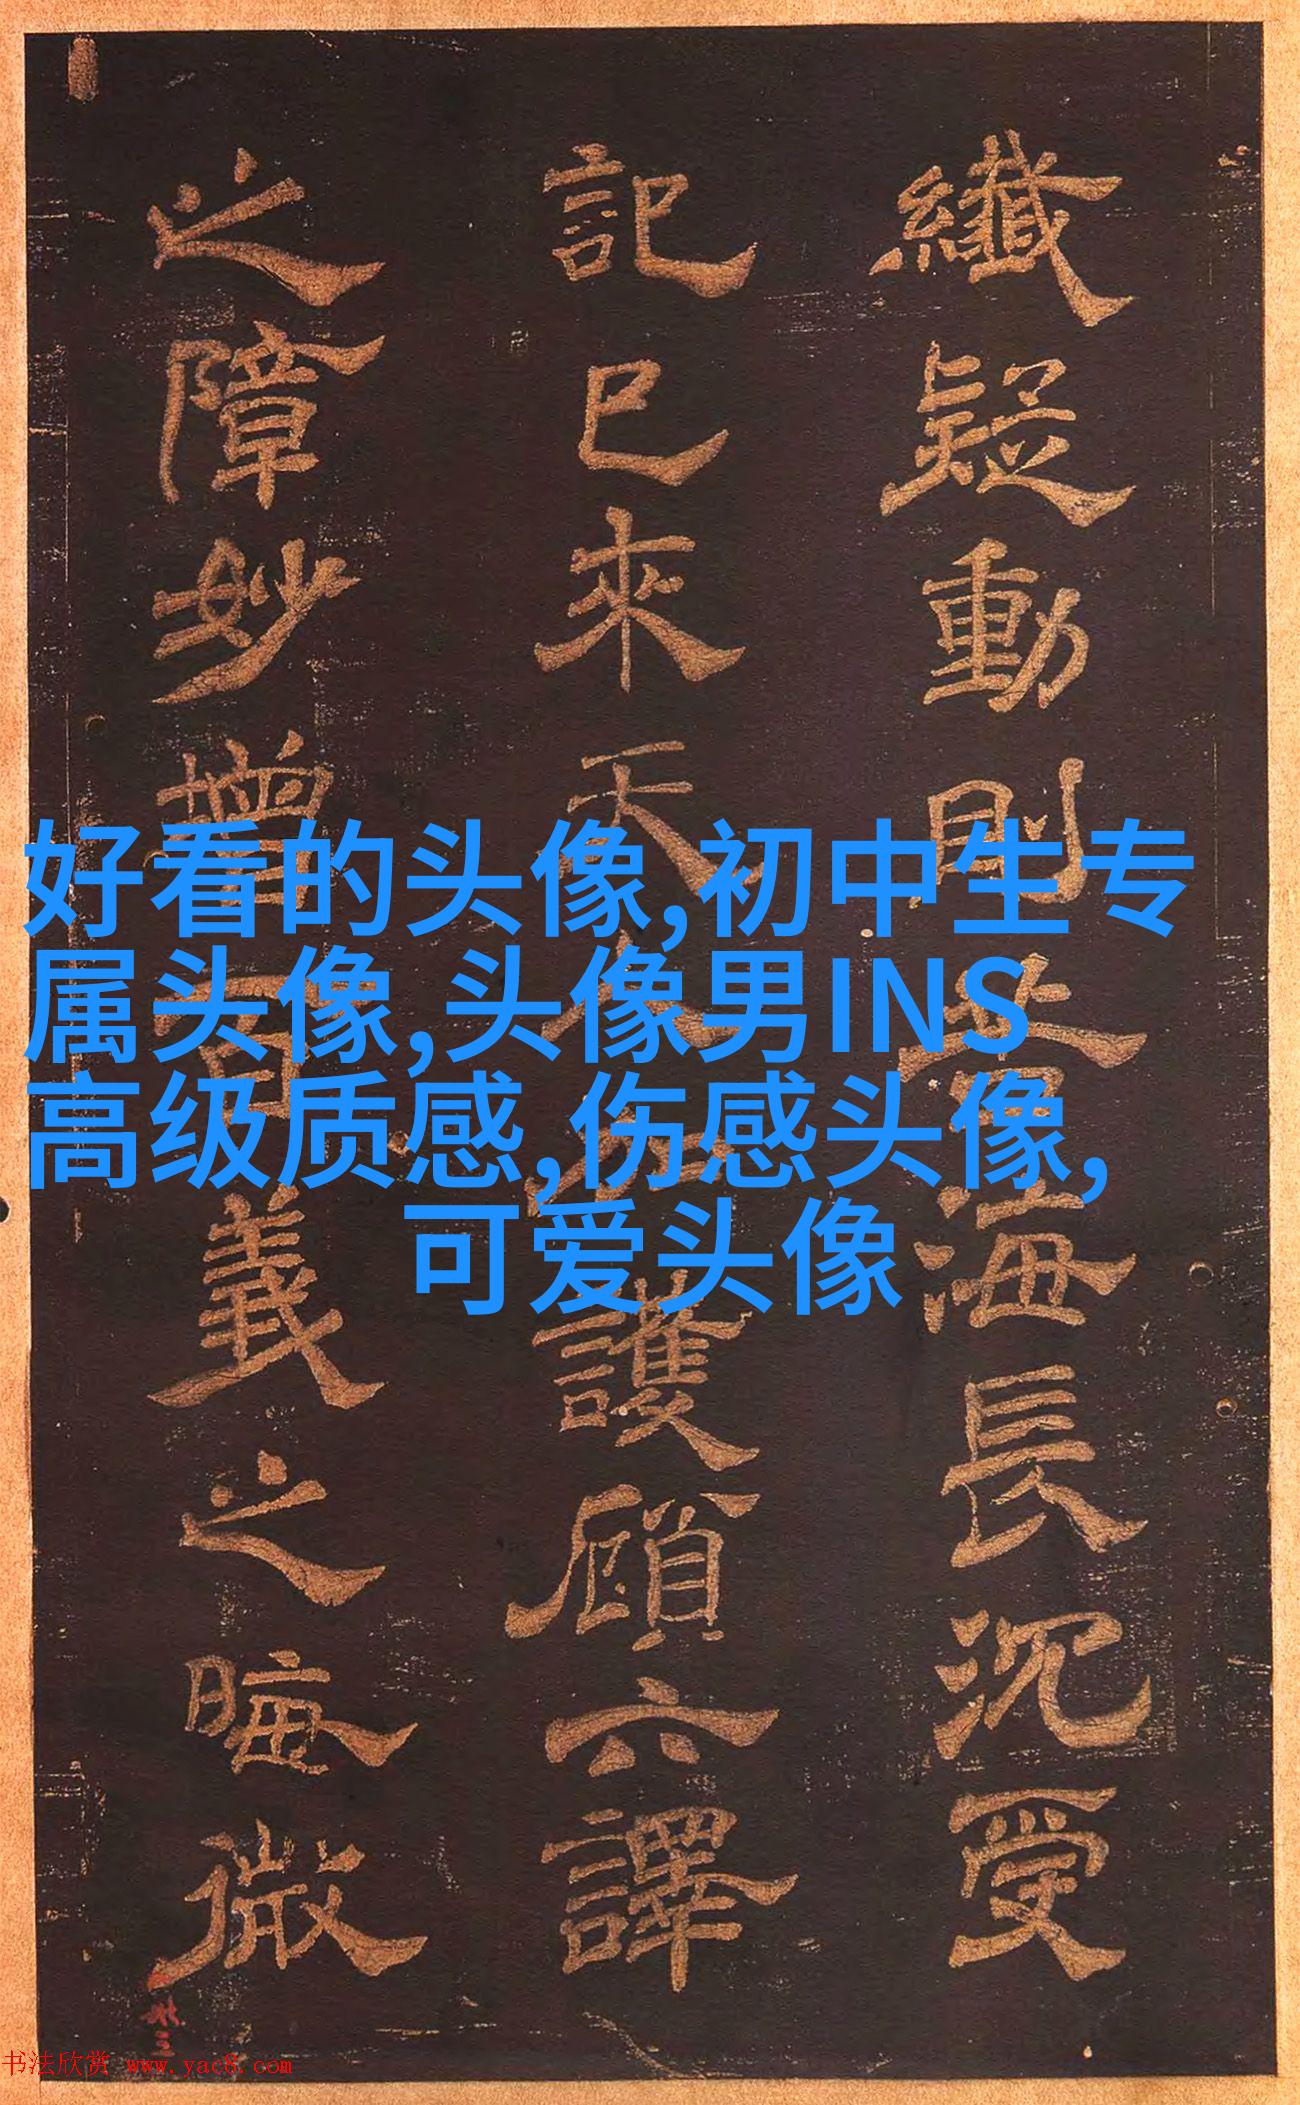 纖疑動則海長沉受
記已來天護顧六譯
之障妙增義之晦微
好看的头像,初中生专
属头像,头像男INS
高级质感,伤感头像,
可爱头像
书法欣赏 www.yac8.com